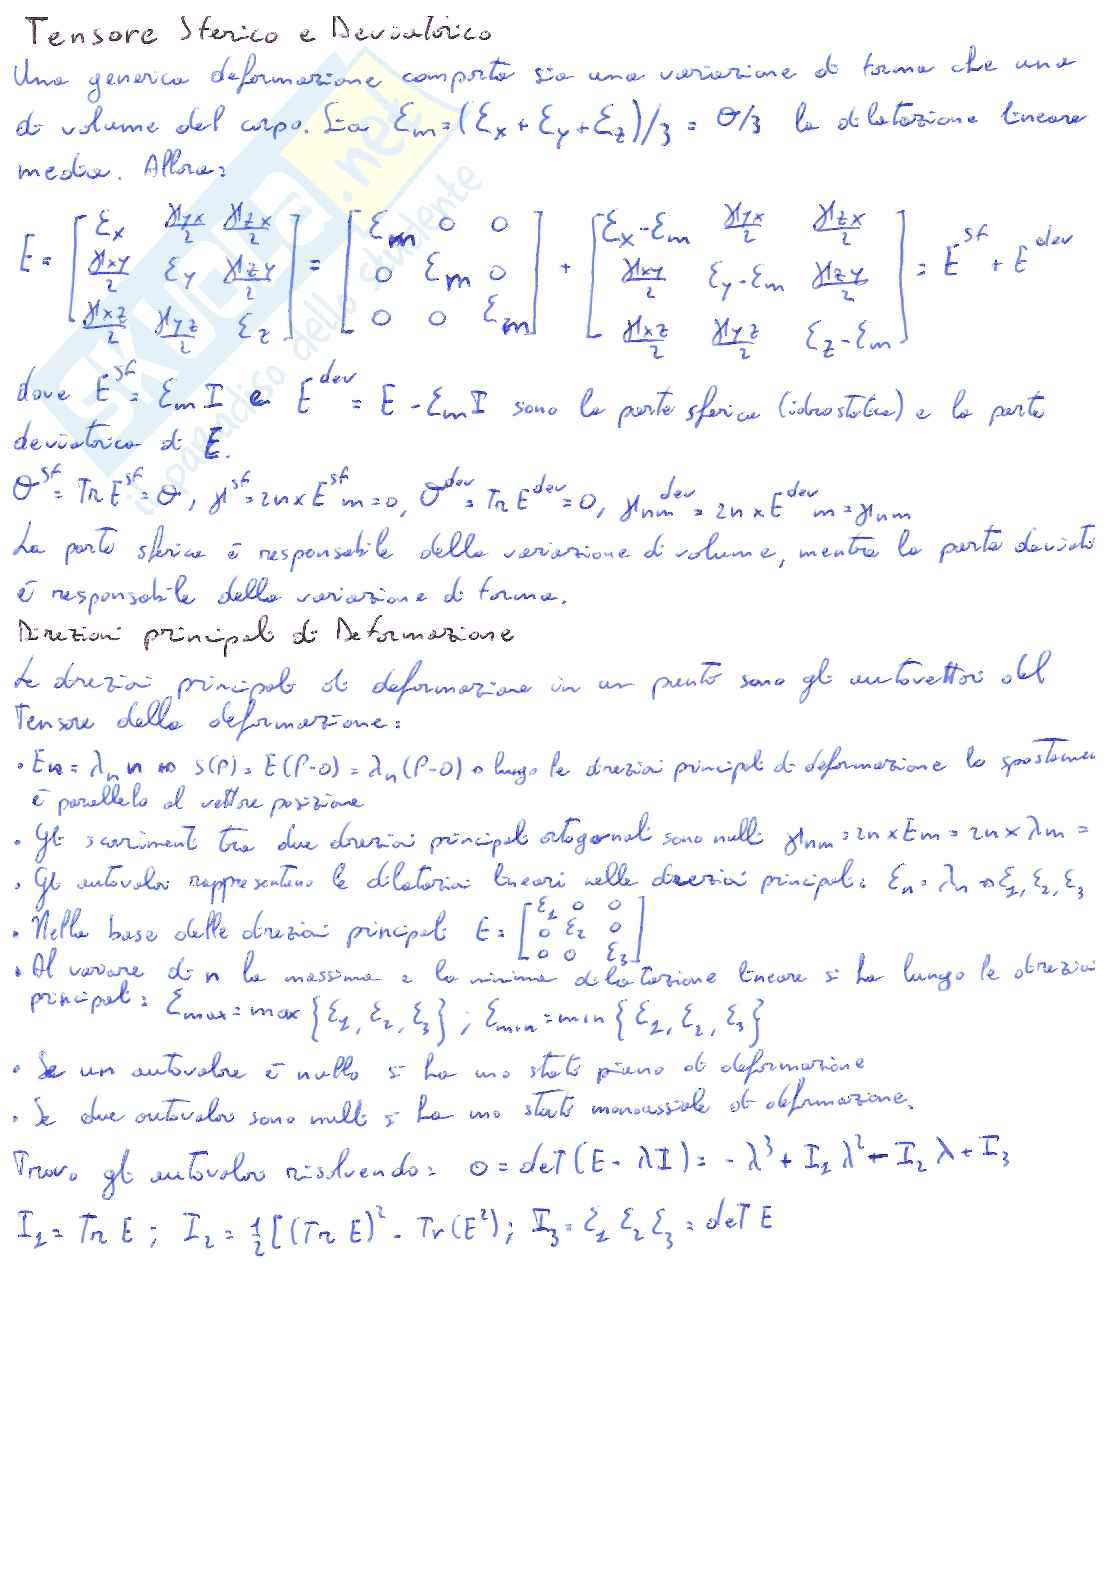 Tensore Sferico e Deviatorico
Una generica deformazione comporta sia una variazione di forma che una
di volume del corpo. Sia Ɛm = (Ɛx + Ɛy + Ɛz)/3 = Θ/3 la dilatazione lineare
media. Allora:
E = [Ɛx γyx/2 γzx/2; γxy/2 Ɛy γzy/2; γxz/2 γyz/2 Ɛz] = [Ɛm 0 0; 0 Ɛm 0; 0 0 Ɛm] + [Ɛx-Ɛm γyx/2 γzx/2; γxy/2 Ɛy-Ɛm γzy/2; γxz/2 γyz/2 Ɛz-Ɛm] = E^sf + E^dev
dove E^sf = Ɛm I e E^dev = E - Ɛm I sono la parte sferica (idrostatica) e la parte
deviatorica di E.
Θ^sf = Tr E^sf = Θ, γ^sf = 2n x E^sf m = 0, Θ^dev = Tr E^dev = 0, γnm^dev = 2n x E^dev m = γnm
La parte sferica è responsabile della variazione di volume, mentre la parte deviato
è responsabile della variazione di forma.
Direzioni principali di Deformazione
Le direzioni principali di deformazione in un punto sono gli autovettori del
Tensore della deformazione:
• En = λn n ⇔ s(P) = E(P-O) = λn(P-O) → lungo le direzioni principali di deformazione lo spostamen
è parallelo al vettore posizione
• Gli scorrimenti tra due direzioni principali ortogonali sono nulli γnm = 2n x Em = 2n x λm =
• Gli autovalori rappresentano le dilatazioni lineari nelle direzioni principali: Ɛn = λn → Ɛ1, Ɛ2, Ɛ3
• Nella base delle direzioni principali E = [Ɛ1 0 0; 0 Ɛ2 0; 0 0 Ɛ3]
• Al variare di n la massima e la minima dilatazione lineare si ha lungo le direzioni
principali: Ɛmax = max {Ɛ1, Ɛ2, Ɛ3} ; Ɛmin = min {Ɛ1, Ɛ2, Ɛ3}
• Se un autovalore è nullo si ha uno stato piano di deformazione
• Se due autovalori sono nulli si ha uno stato monoassiale di deformazione.
Trovo gli autovalori risolvendo: 0 = det(E - λI) = -λ³ + I1 λ² - I2 λ + I3
I1 = Tr E ; I2 = 1/2 [(Tr E)² - Tr(E²); I3 = Ɛ1 Ɛ2 Ɛ3 = det E
skuola.net
il paradiso dello studente